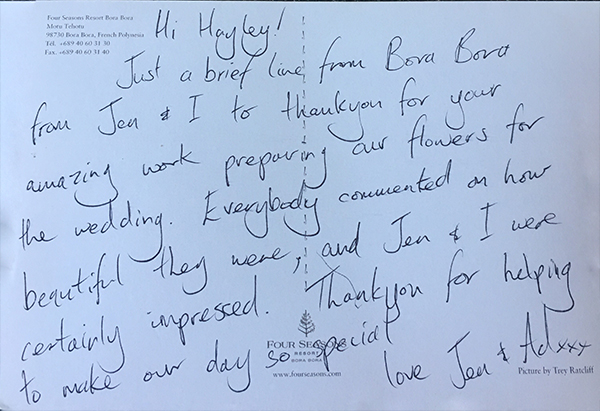 Four Seasons Resort Bora Bora
Motu Tehotu
98730 Bora Bora, French Polynesia
Tel. +689 40 60 31 30
Fax. +689 40 60 31 40
Hi Hayley!
Just a brief line from Bora Bora
from Jen & I to thankyou for your
amazing work preparing our flowers for
the wedding. Everybody commented on how
beautiful they were, and Jen & I were
certainly impressed. Thankyou for helping
to make our day so special
love Jen & Ad xxx
FOUR SEASONS
RESORT
BORA BORA
www.fourseasons.com
Picture by Trey Ratcliff